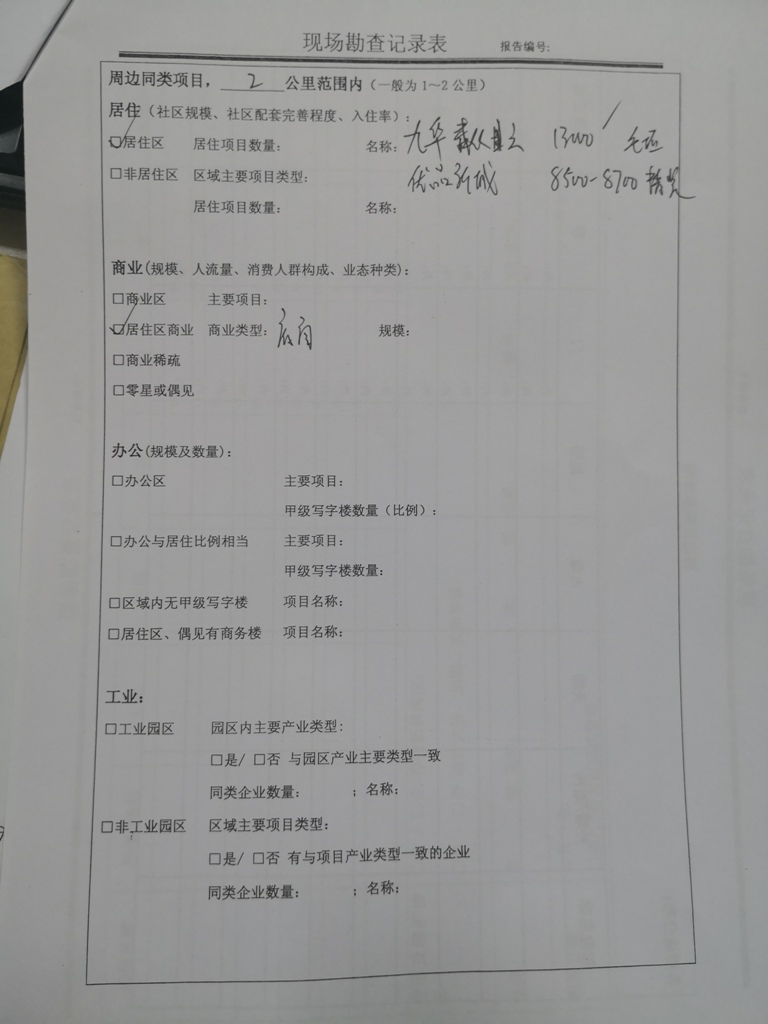 现场勘查记录表 报告编号:
周边同类项目, 2 公里范围内（一般为1～2公里）
居住（社区规模、社区配套完善程度、入住率）:
☑居住区 居住项目数量: 名称: 九华 13000 毛坯
□非居住区 区域主要项目类型: 优品新城 8500-8700 精装
居住项目数量: 名称:
商业(规模、人流量、消费人群构成、业态种类):
□商业区 主要项目:
☑居住区商业 商业类型: 底商 规模:
□商业稀疏
□零星或偶见
办公(规模及数量):
□办公区 主要项目:
甲级写字楼数量（比例）:
□办公与居住比例相当 主要项目:
甲级写字楼数量:
□区域内无甲级写字楼 项目名称:
□居住区、偶见有商务楼 项目名称:
工业:
□工业园区 园区内主要产业类型:
□是/ □否 与园区产业主要类型一致
同类企业数量: ; 名称:
□非工业园区 区域主要项目类型:
□是/ □否 有与项目产业类型一致的企业
同类企业数量: ; 名称: